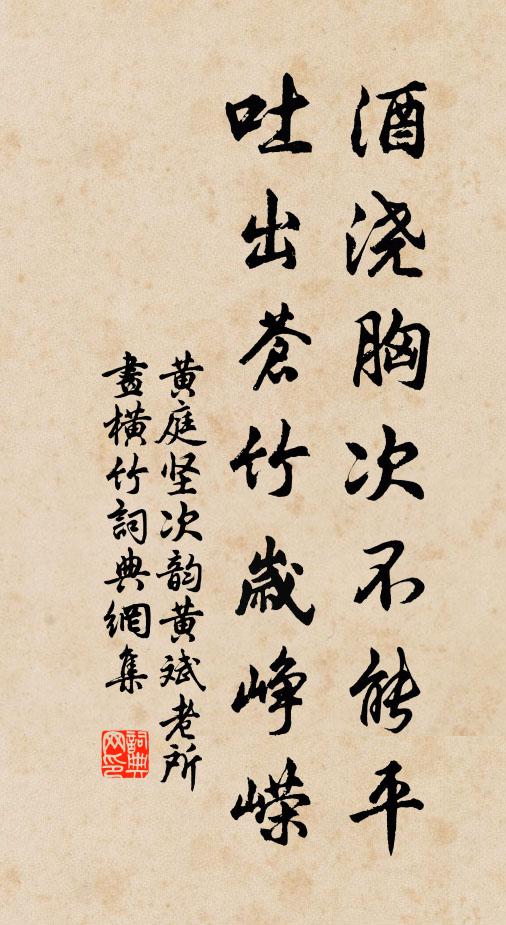 酒浇胸次不能平
吐出蒼竹歲峥嵘
黄庭坚次韵黄斌老所
畫橫竹詞典網集
詞典
网印